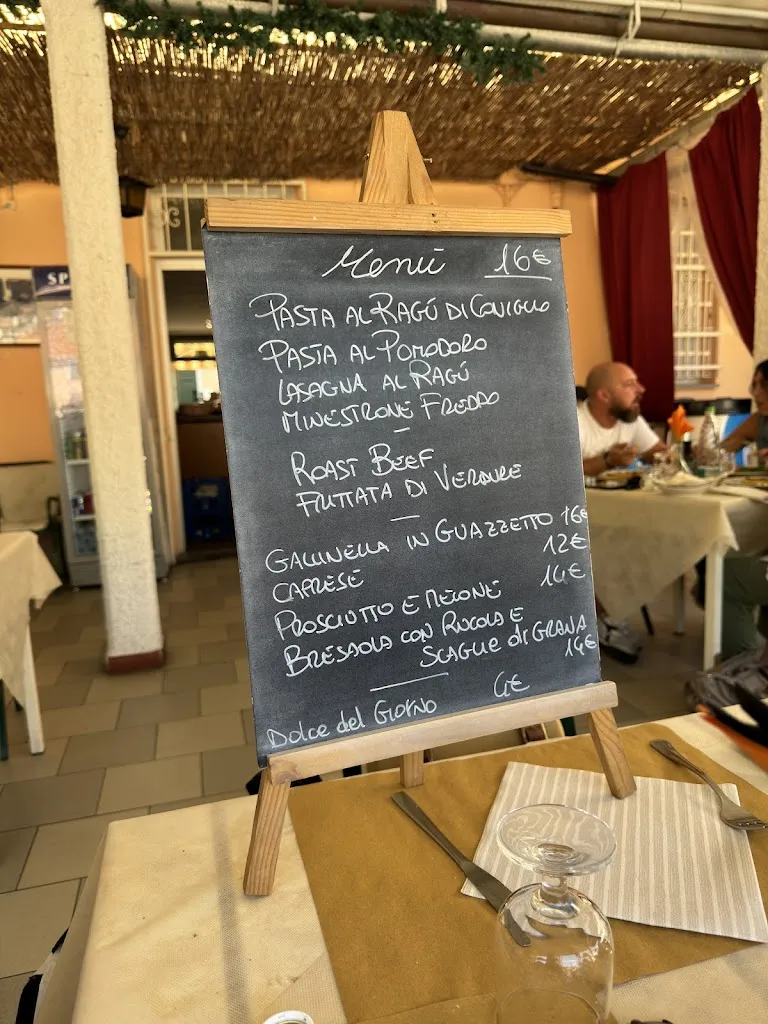 Menù 16€
PASTA AL RAGÚ DI CONIGLIO
PASTA AL POMODORO
LASAGNA AL RAGÚ
MINESTRONE FREDDO
ROAST BEEF
FRITTATA DI VERDURE
GALLINELLA IN GUAZZETTO 16€
CAPRESE 12€
PROSCIUTTO E MELONE 14€
BRESAOLA CON RUCOLA E
SCAGLIE di GRANA 14€
Dolce del GIORNO 4€
SP